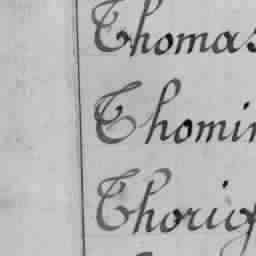 Thomas
Thomin
Thorig